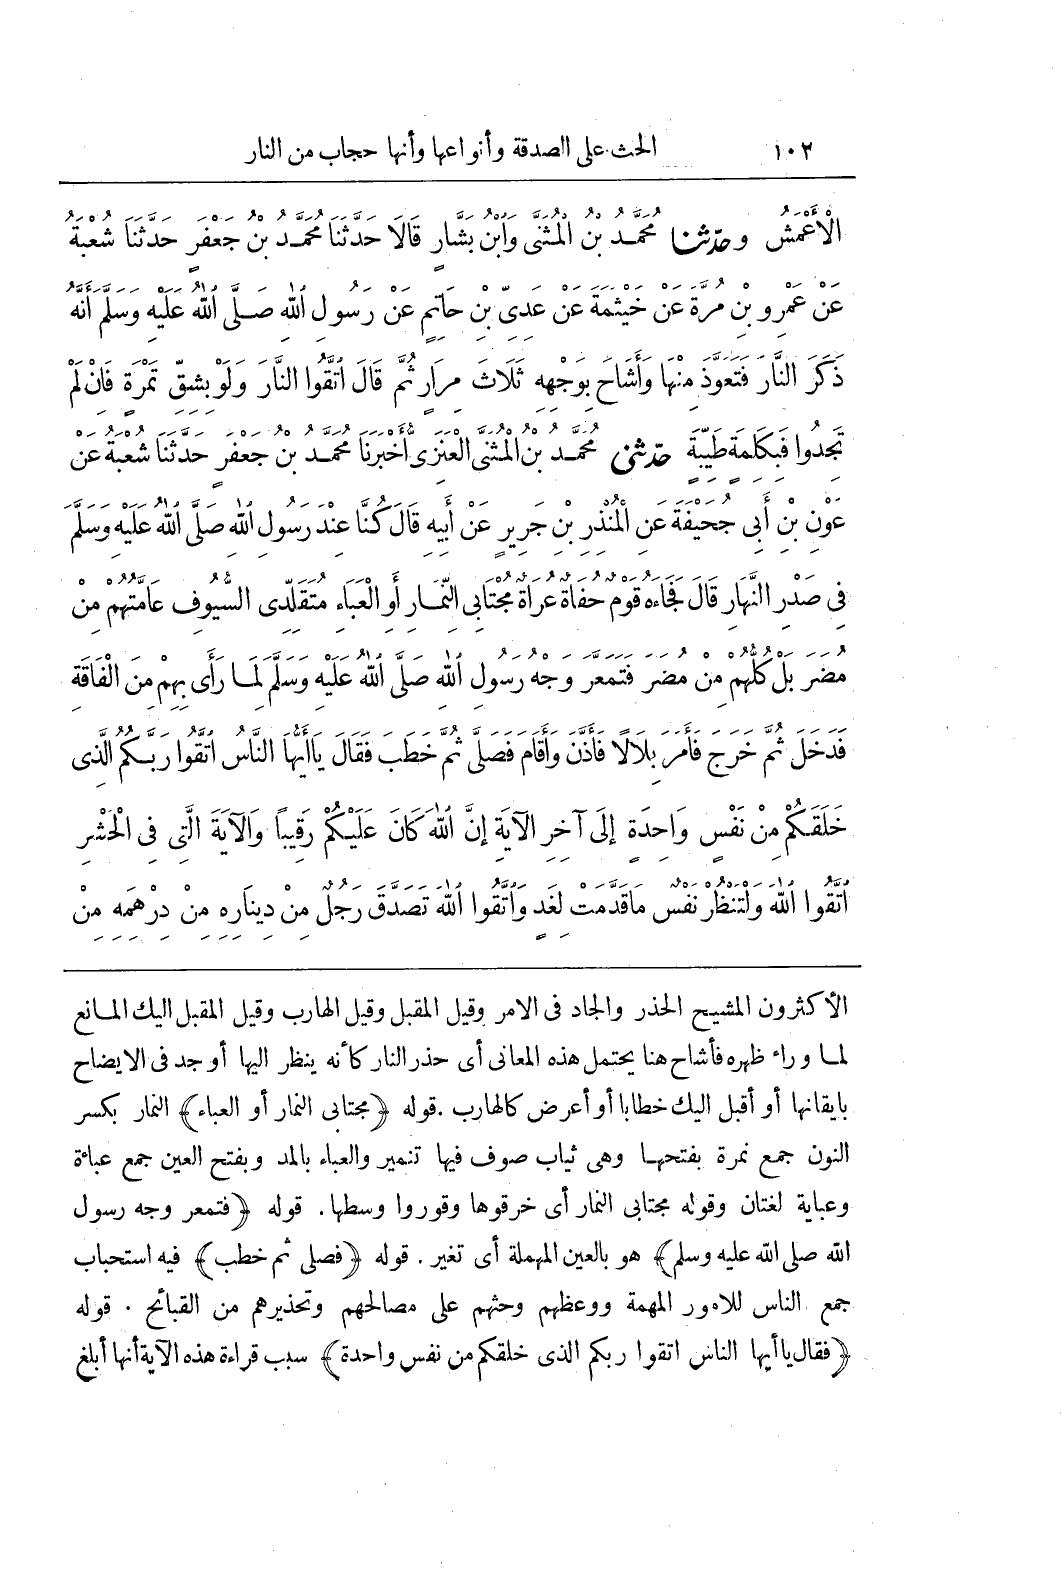 ١٠٢ الحث على الصدقة وأنواعها وأنها حجاب من النار
الْأَعْمَشُ وحدثنا مُحَمَّدُ بْنُ الْمُثَنَّى وَابْنُ بَشَّارٍ قَالَا حَدَّثَنَا مُحَمَّدُ بْنُ جَعْفَرٍ حَدَّثَنَا شُعْبَةُ
عَنْ عَمْرِو بْنِ مُرَّةَ عَنْ خَيْثَمَةَ عَنْ عَدِيِّ بْنِ حَاتِمٍ عَنْ رَسُولِ اللهِ صَلَّى اللهُ عَلَيْهِ وَسَلَّمَ أَنَّهُ
ذَكَرَ النَّارَ فَتَعَوَّذَ مِنْهَا وَأَشَاحَ بِوَجْهِهِ ثَلَاثَ مِرَارٍ ثُمَّ قَالَ اتَّقُوا النَّارَ وَلَوْ بِشِقِّ تَمْرَةٍ فَانْ لَمْ
تَجِدُوا فَبِكَلِمَةٍ طَيِّبَةٍ حدثنى مُحَمَّدُ بْنُ الْمُثَنَّى الْعَنَزِى أَخْبَرَنَا مُحَمَّدُ بْنُ جَعْفَرٍ حَدَّثَنَا شُعْبَةُ عَنْ
عَوْنِ بْنِ أَبِى جُحَيْفَةَ عَنِ الْمُنْذِرِ بْنِ جَرِيرٍ عَنْ أَبِيهِ قَالَ كُنَّا عِنْدَ رَسُولِ اللهِ صَلَّى اللهُ عَلَيْهِ وَسَلَّمَ
فِى صَدْرِ النَّهَارِ قَالَ فَجَاءَهُ قَوْمٌ حُفَاةٌ عُرَاةٌ مُجْتَابِى النِّمَارِ أَوِ الْعَبَاءِ مُتَقَلِّدِى السُّيُوفِ عَامَّتُهُمْ مِنْ
مُضَرَ بَلْ كُلُّهُمْ مِنْ مُضَرَ فَتَمَعَّرَ وَجْهُ رَسُولِ اللهِ صَلَّى اللهُ عَلَيْهِ وَسَلَّمَ لَمَا رَأَى بِهِمْ مِنَ الْفَاقَةِ
فَدَخَلَ ثُمَّ خَرَجَ فَأَمَرَ بِلَالًا فَأَذَّنَ وَأَقَامَ فَصَلَّى ثُمَّ خَطَبَ فَقَالَ يَاأَيُّهَا النَّاسُ اتَّقُوا رَبَّكُمُ الَّذِى
خَلَقَكُمْ مِنْ نَفْسٍ وَاحِدَةٍ إِلَى آخِرِ الْآيَةِ إِنَّ اللهَ كَانَ عَلَيْكُمْ رَقِيبًا وَالْآيَةَ الَّتِى فِى الْحَشْرِ
اتَّقُوا اللهَ وَلْتَنْظُرْ نَفْسٌ مَاقَدَّمَتْ لِغَدٍ وَاتَّقُوا اللهَ تَصَدَّقَ رَجُلٌ مِنْ دِينَارِهِ مِنْ دِرْهَمِهِ مِنْ
الأكثرون المشيح الحذر والجاد فى الامر وقيل المقبل وقيل الهارب وقيل المقبل اليك المانع
لما وراء ظهره فأشاح هنا يحتمل هذه المعانى أى حذر النار كأنه ينظر اليها أو جد فى الايضاح
بايقانها أو أقبل اليك خطابا أو أعرض كالهارب . قوله ﴿مجتابى النمار أو العباء﴾ النمار بكسر
النون جمع نمرة بفتحها وهى ثياب صوف فيها تنمير والعباء بالمد وبفتح العين جمع عباءة
وعباية لغتان وقوله مجتابى النمار أى خرقوها وقوروا وسطها . قوله ﴿فتمعر وجه رسول
الله صلى الله عليه وسلم﴾ هو بالعين المهملة أى تغير . قوله ﴿فصلى ثم خطب﴾ فيه استحباب
جمع الناس للامور المهمة ووعظهم وحثهم على مصالحهم وتحذيرهم من القبائح . قوله
﴿فقال ياأيها الناس اتقوا ربكم الذى خلقكم من نفس واحدة﴾ سبب قراءة هذه الآية أنها أبلغ